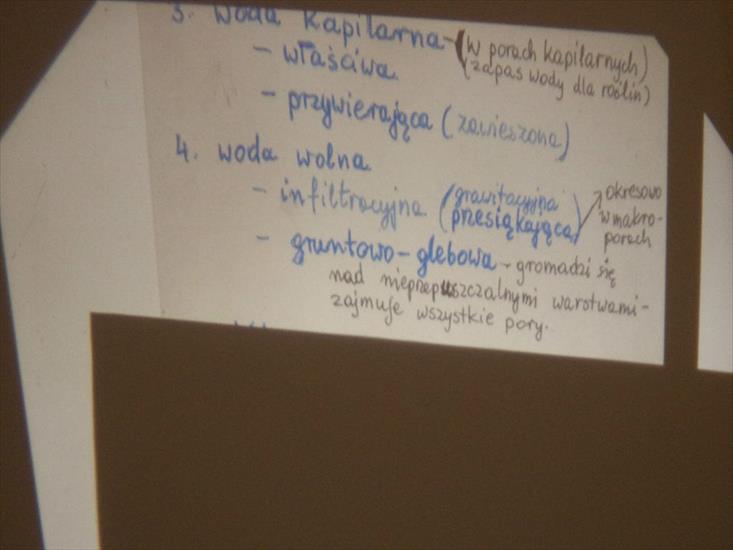 3. Woda Kapilarna - (w porach kapilarnych)
- właściwa (zapas wody dla roślin)
- przywierająca (zawieszona)
4. woda wolna
- infiltracyjna (grawitacyjna okresowo
przesiąkająca) w makro-
porach
- gruntowo-glebowa - gromadzi się
nad nieprzepuszczalnymi warstwami -
zajmuje wszystkie pory.